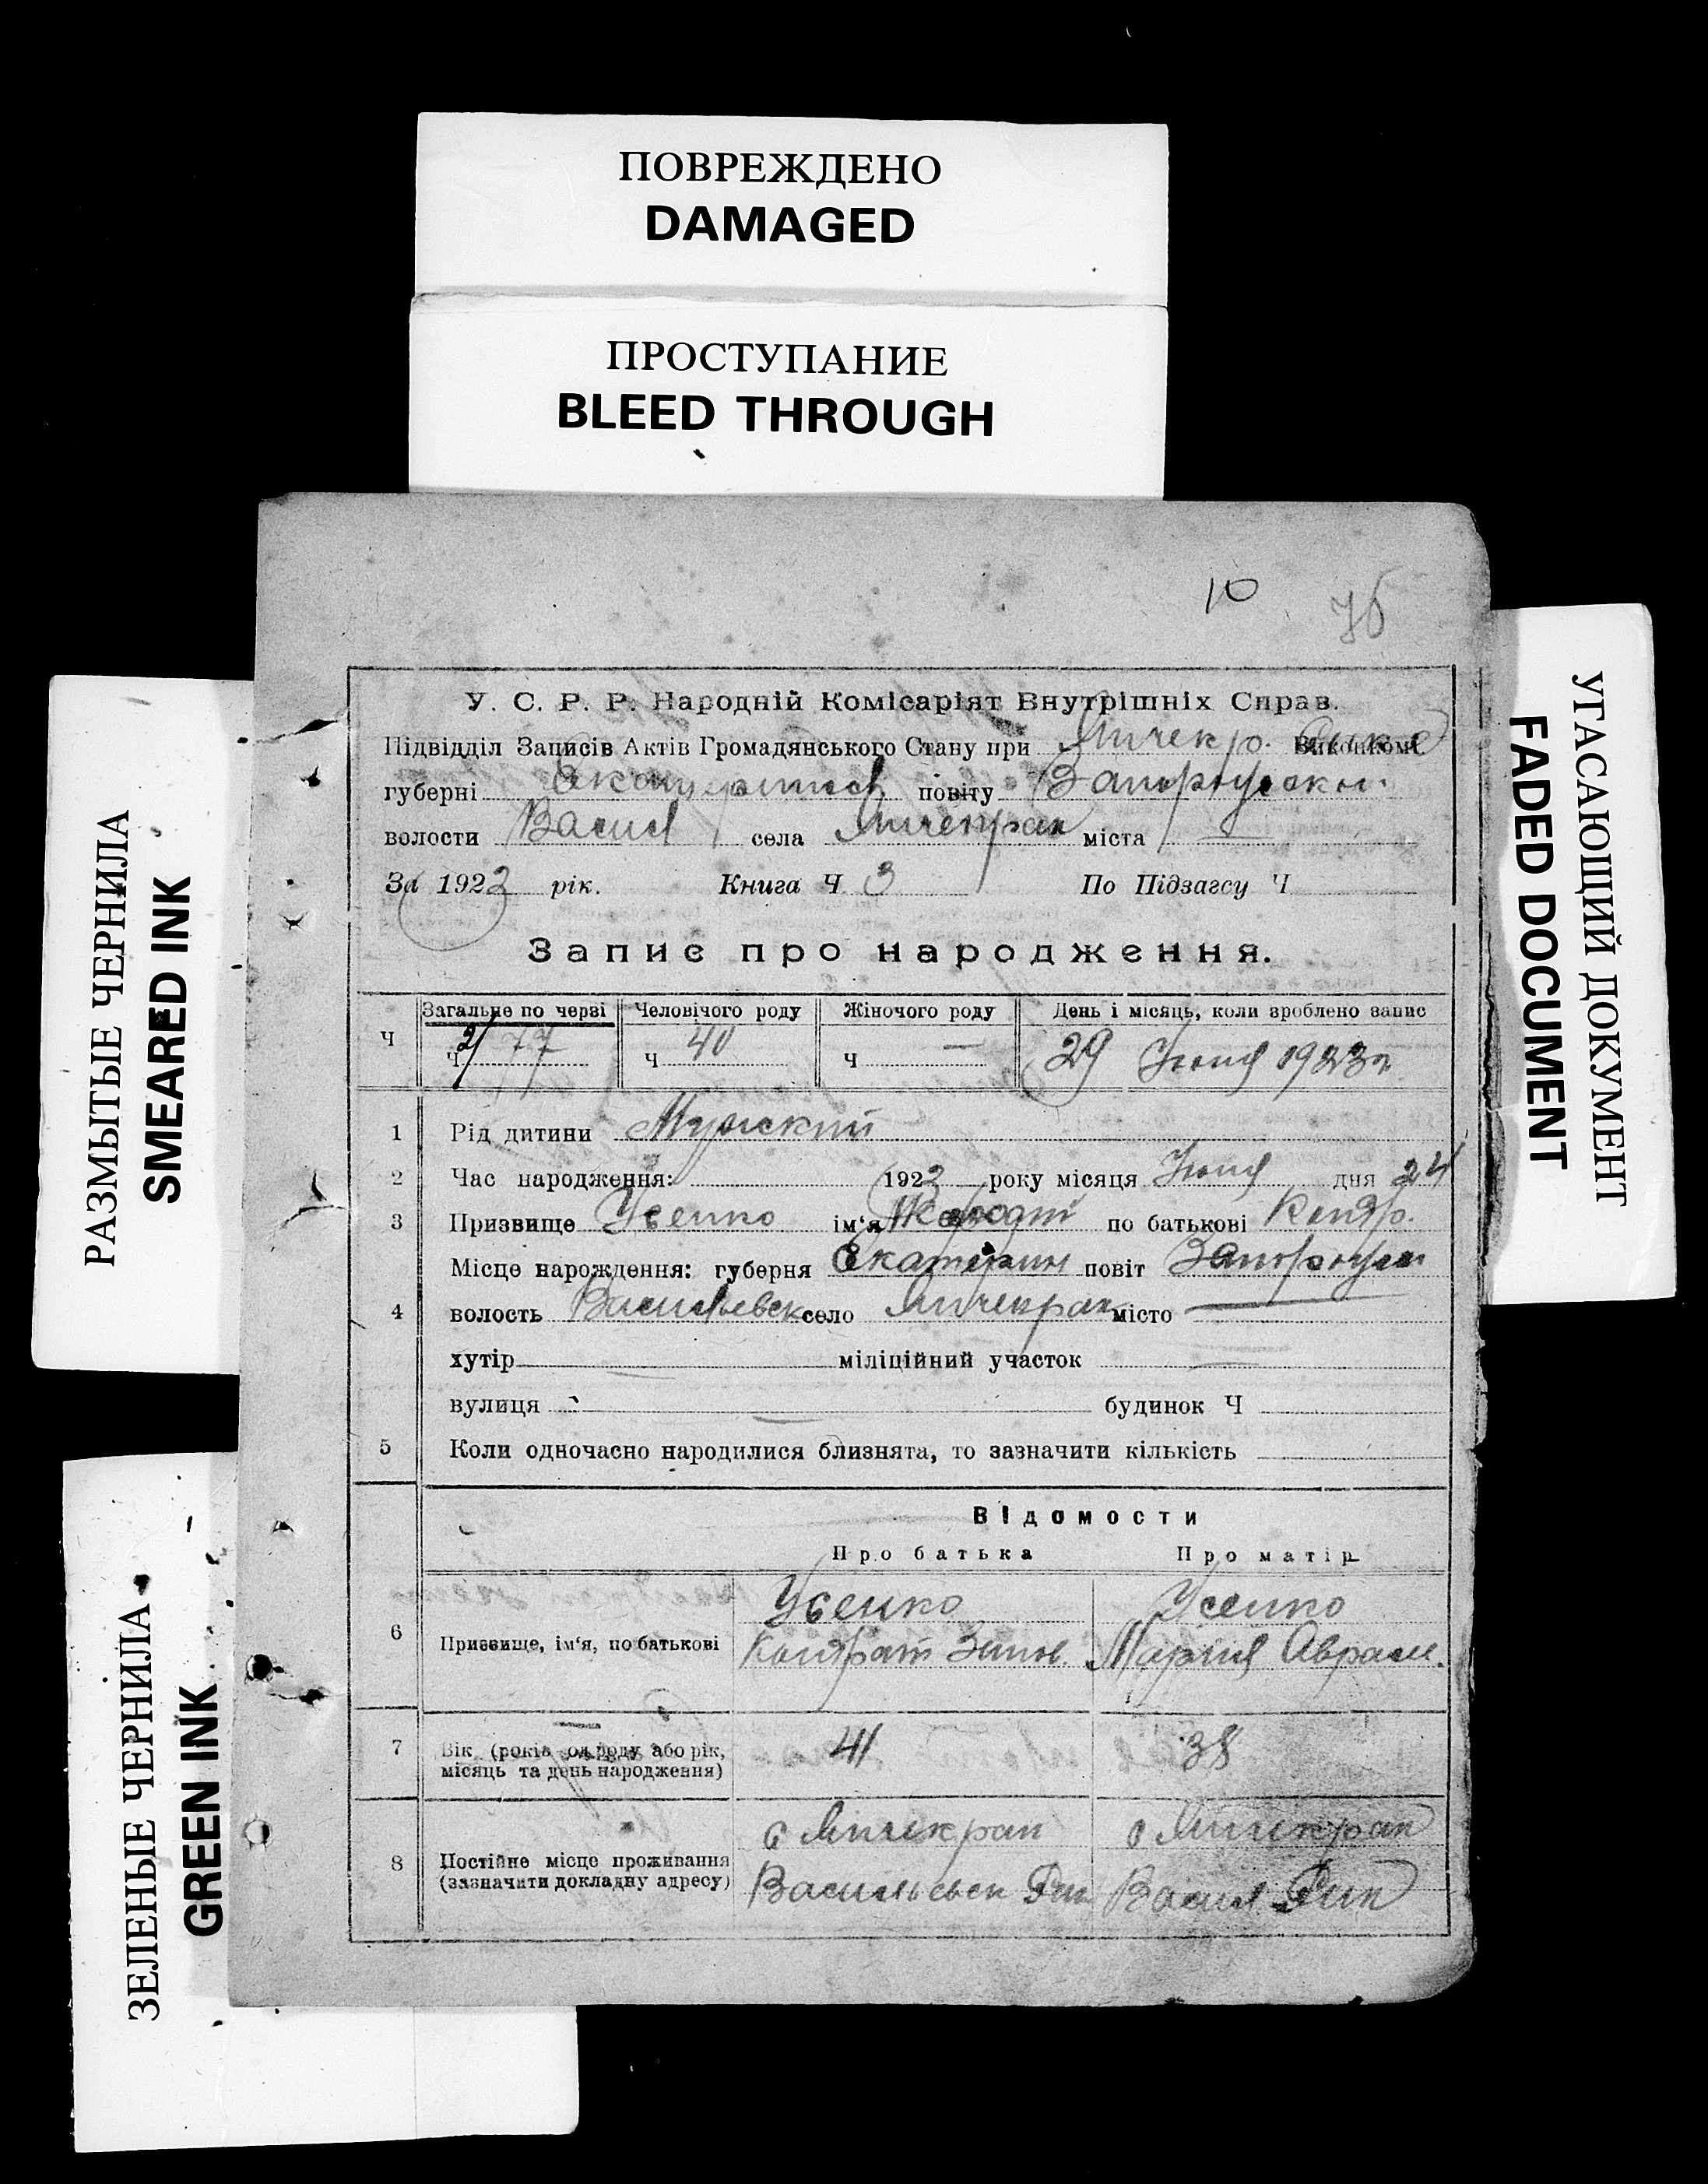 ПОВРЕЖДЕНО
DAMAGED
ПРОСТУПАНИЕ
BLEED THROUGH
РАЗМЫТЫЕ ЧЕРНИЛА
SMEARED INK
ЗЕЛЕНЫЕ ЧЕРНИЛА
GREEN INK
УГАСАЮЩИЙ ДОКУМЕНТ
FADED DOCUMENT
10
У. С. Р. Р. Народній Комісаріят Внутрішніх Справ.
Підвідділ Записів Актів Громадянського Стану при Янчекр. Виконкомі
губерні повіту
волости Васил села Янчекрак міста —
За 1923 рік. Книга Ч 3 По Підзагсу Ч
Запис про народження.
Загальне по черзі Человічого роду Жіночого роду День і місяць, коли зроблено запис
Ч Ч 77 Ч 40 Ч — 29 Июня 1923 г
1 Рід дитини Мужский
2 Час народження: 1923 року місяця Июня дня 24
3 Призвище Усенко ім‘я по батькові Кондр.
Місце нарождення: губерня Екатерин повіт
4 волость Васильевск село Янчекрак місто —
хутір міліційний участок —
вулиця — будинок Ч
5 Коли одночасно народилися близнята, то зазначити кількість
Відомости
Про батька Про матір
6 Призвище, ім‘я, по батькові Усенко Усенко
Кондрат Зинов. Мария Аврам.
7 Вік (років од роду або рік, місяць та день народження) 41 38
8 Постійне місце проживання (зазначити докладну адресу) с Янчекрак с Янчекрак
Васильевск Васил